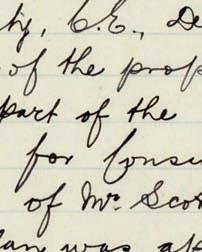 ty, C.E., De
of the prop
part of the
for Consi
of Mr. Scot
lan was